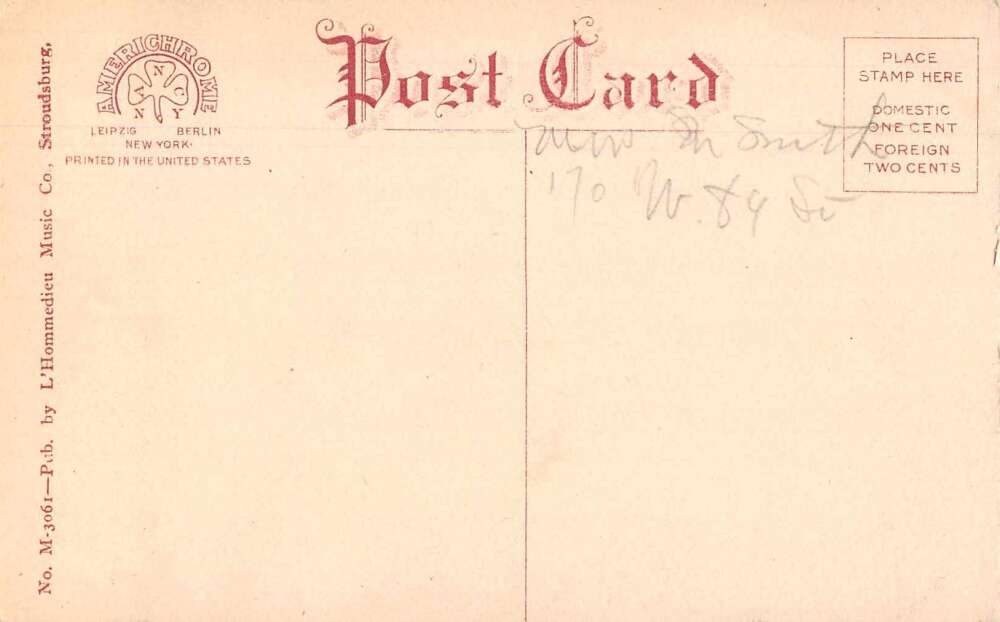 AMERICHROME
A N C
N Y
LEIPZIG BERLIN
NEW YORK.
PRINTED IN THE UNITED STATES
No. M-3061—Pub. by L'Hommedieu Music Co., Stroudsburg,
Post Card
PLACE
STAMP HERE
DOMESTIC
ONE CENT
FOREIGN
TWO CENTS
Smith
170 W. 84 St